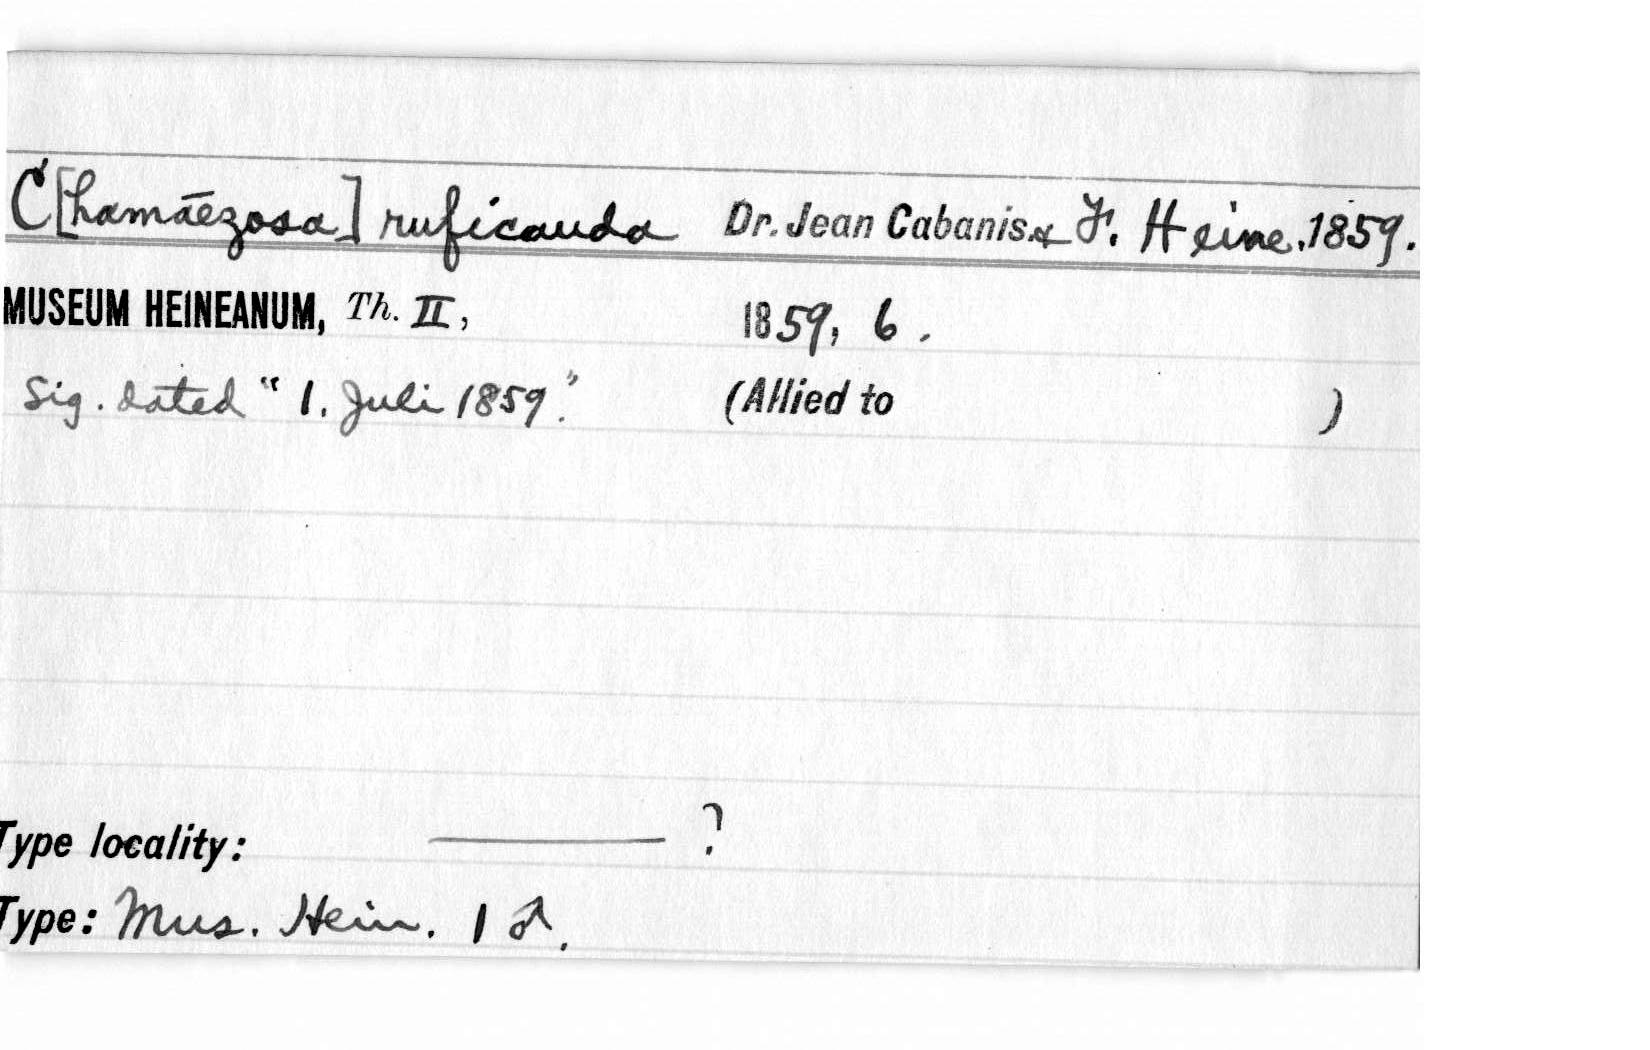 C[hamaēzosa] ruficauda Dr. Jean Cabanis & F. Heine. 1859.
MUSEUM HEINEANUM, Th. II, 1859, 6.
Sig. dated "1. Juli 1859." (Allied to )
Type locality: ——— ?
Type: Mus. Hein. 1 ♂.